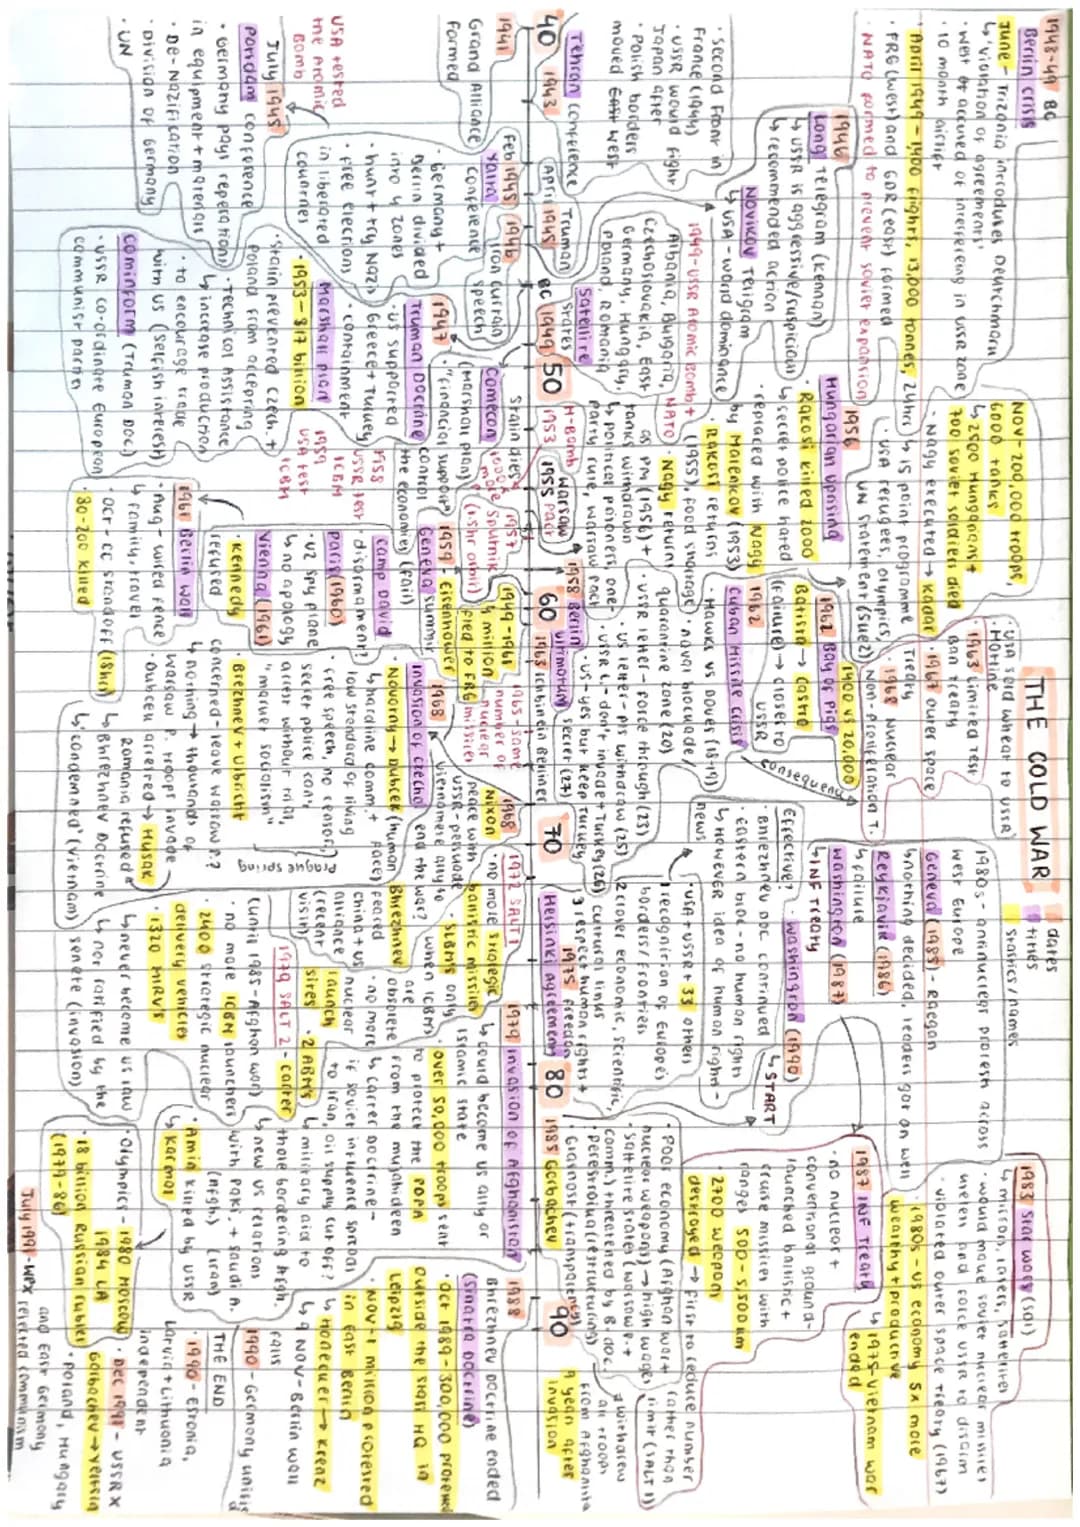 THE COLD WAR
dates
titles
statistics/names
1948-49 BC
Berlin crisis
June - Trizonia introduces Deutchmark
↳ 'violation of agreements'
west BC accused of interfering in USSR zone
· 10 month airlift
· April 1949 - 1,400 flights, 13,000 tonnes, 24hrs
· FRG (west) and GDR (east) formed
· NATO formed to prevent soviet expansion
1946
Long Telegram (Kennan)
↳ USSR is aggressive/suspicious
↳ recommended action
Novikov telegram
↳ USA - world dominance
1949 - USSR Atomic Bomb +
NATO
Satellite
states
Albania, Bulgaria,
Czechoslovakia, East
Germany, Hungary,
Poland, Romania
· second front in
France (1944)
· USSR would fight
Japan after
· Polish borders
moved west
Tehran conference
40
1943
April 1945
Truman
BC 1949
50
H-Bomb
1953
1955
Warsaw
pact
1958 Berlin
Ultimatum
60
1963 Ich bin ein Berliner
70
1975
Helsinki agreement
80
1985 Gorbachev
90
Nov - 200,000 troops,
6000 tanks
↳ 2,500 Hungarians +
700 soviet soldiers died
· Nagy executed → Kadar
↳ 15 point programme
· USA refugees, olympics,
UN statement (Suez)
1956
Hungarian uprising
· Rakosi killed 2000
↳ secret police hated
· replaced with Nagy
by Malenkov (1953)
· Rakosi returns
(1955), food shortage
· Nagy returns
as PM (1956) +
tanks withdrawn
↳ political prisoners, one-
party rule, warsaw pact
USA sold wheat to USSR
· Hotline
· 1963 Limited Test
Ban treaty
· 1967 Outer space
treaty
· 1968 Nuclear
Non-Proliferation T.
1961 Bay of Pigs
1400 vs 20,000
Batista → Castro
(failure) → closer to
USSR
consequence
1962
Cuban Missile crisis
· Hawks vs Doves (18-19)
· naval blockade/
quarantine zone (20)
· USSR letter - force through (23)
· US letter - pls withdraw (25)
· USSR L - don't invade + Turkey (26)
· US - yes but keep Turkey
secret (27)
1980s - antinuclear protests across
west Europe
Geneva (1985) - Reagan
↳ nothing decided, leaders got on well
Reykjavik (1986)
↳ failure
Washington (1987)
↳ INF Treaty
· Washington (1990)
↳ START
Effective?
· Brezhnev Doc continued
· Eastern bloc - no human rights
↳ However idea of human rights -
news
· USA + USSR + 33 others
1 recognition of Europe
borders/frontiers
2 closer economic, scientific,
cultural links
3 respect human rights +
freedom
1983 Star wars (SDI)
· mirrors, lasers, satellites
· would make soviet nuclear missiles
useless and force USSR to disarm
· violated outer space treaty (1967)
· 1980s - US economy 5x more
wealthy + productive
↳ 1975 - vietnam war
ended
1987 INF Treaty
· no nuclear +
conventional ground-
launched ballistic +
cruise missiles with
ranges 500 - 5,500 km
· 2700 weapons
destroyed → first to reduce number
rather than
limit (SALT 1)
· Poor economy (Afghan war +
nuclear weapons) → high wages
· Satellite states (warsaw P. +
comm.) threatened by B doc.
· Perestroika (restructuring)
· Glasnost (transparency)
↳ withdrew
all troops
from Afghanista
9 years after
invasion
1941
Grand Alliance
formed
Feb 1945
Yalta
conference
· Germany +
Berlin divided
into 4 zones
· hunt + try Nazis
· free elections
in liberated
countries
USA tested
the Atomic
Bomb
July 1945
Potsdam conference
· Germany pays reparations
in equipment + materials
· De-Nazification
· Division of Germany
· UN
1946
Iron curtain
speech
1947
Truman Doctrine
· US supported
Greece + Turkey
· containment
Marshall plan
· 1953 - $17 billion
· Stalin prevented Czech. +
Poland from accepting
· Technical assistance
↳ increase production
· to encourage trade
with US (Selfish interest)
Cominform (Truman Doc.)
· USSR co-ordinate European
communist parties
Stalin dies
Comecon
(Marshall plan)
· "financial support"
control
the economies (fail)
1957
Sputnik
(1.5hr orbit)
1958
USSR test
ICBM
1959
USA test
ICBM
1949-1961
↳ 3 million
fled to FRG
1959 - Eisenhower
Geneva summit
Camp David
disarmament?
Paris (1960)
· U2 spy plane
↳ no apology
Vienna (1961)
· Kennedy
refused
1961 Berlin wall
· Aug - wired fence
↳ family, travel
Oct - CC standoff (18hr)
· 80-200 killed
1965 - same
number of
nuclear
missiles
1968
Invasion of Czecho
· Novotny → Dubcek (human
face)
↳ hardline comm. +
low standard of living
· free speech, no censor,
secret police can't
arrest without trial,
"market socialism"
Prague spring
· Brezhnev + Ulbricht
concerned - leave warsaw P.?
↳ nothing → thousands of
warsaw P. troops invade
· Dubcek arrested → Husak
· Romania refused
↳ Brezhnev Doctrine
↳ 'condemned' (Vietnam)
1968
Nixon
peace with
USSR - persuade
vietnamese ally to
end the war?
Brezhnev
feared
china + US
alliance
(recent
visit)
1972 SALT 1
· no more strategic
ballistic missiles
· SLBMs only
when ICBMs
are
obsolete
· no more
nuclear
launch
sites
· 2 ABMs
1979 SALT 2 - Carter
(until 1985 - Afghan war)
· no more ICBM launchers
· 2400 strategic nuclear
delivery vehicles
· 1320 MIRVs
↳ never become US law
↳ not ratified by the
senate (invasion)
1979 Invasion of Afghanistan
↳ could become US ally or
Islamic state
· over 50,000 troops sent
to protect the PDPA
from the mujahideen
↳ Carter Doctrine -
if soviet influence spreads
to Iran, oil supply cut off?
↳ military aid to
those bordering Afgh.
↳ new US relations
with Paki. + Saudi A.
(Afgh) (Iran)
· Amin killed by USSR
↳ Karmal
· Olympics - 1980 Moscow
1984 LA
· 18 billion Russian rubles
(1979-86)
1988
Brezhnev Doctrine ended
(Sinatra Doctrine)
· Oct 1989 - 300,000 protested
outside the stasi HQ in
Leipzig
· Nov - 1 million protested
in east Berlin
↳ Honecker → Krenz
↳ 9 Nov - Berlin wall
falls
1990 - Germany unifies
THE END
· 1990 - Estonia,
Latvia + Lithuania
independent
· Dec 1991 - USSR X
Gorbachev → Yeltsin
· Poland, Hungary
and East Germany
rejected communism
July 1991 - WPX